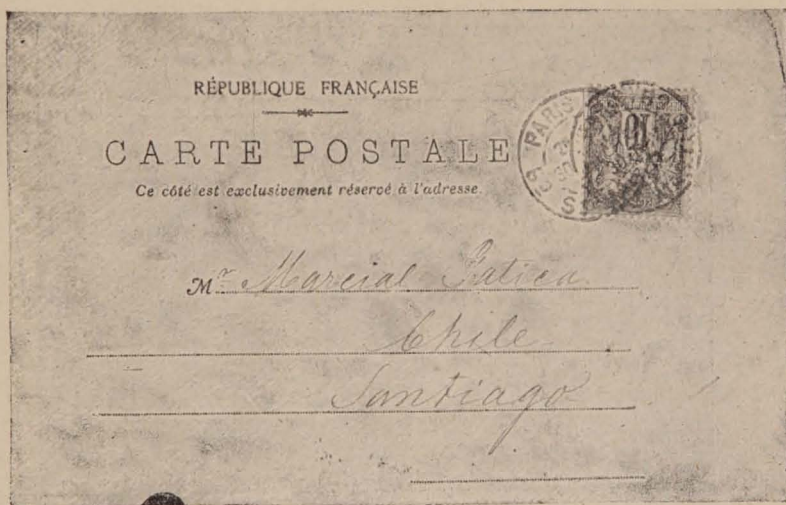 RÉPUBLIQUE FRANÇAISE
CARTE POSTALE
Ce côté est exclusivement réservé à l'adresse.
PARIS
10
Mr Marcial Patica
Chile
Santiago